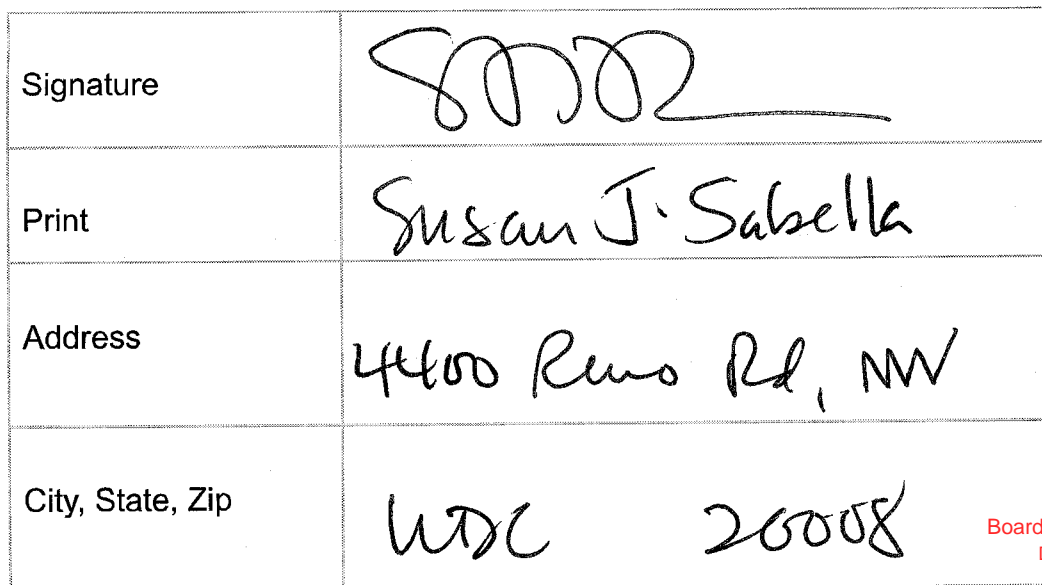 Signature
Print Susan J. Sabella
Address 4400 Reno Rd, NW
City, State, Zip WDC 20008
Board